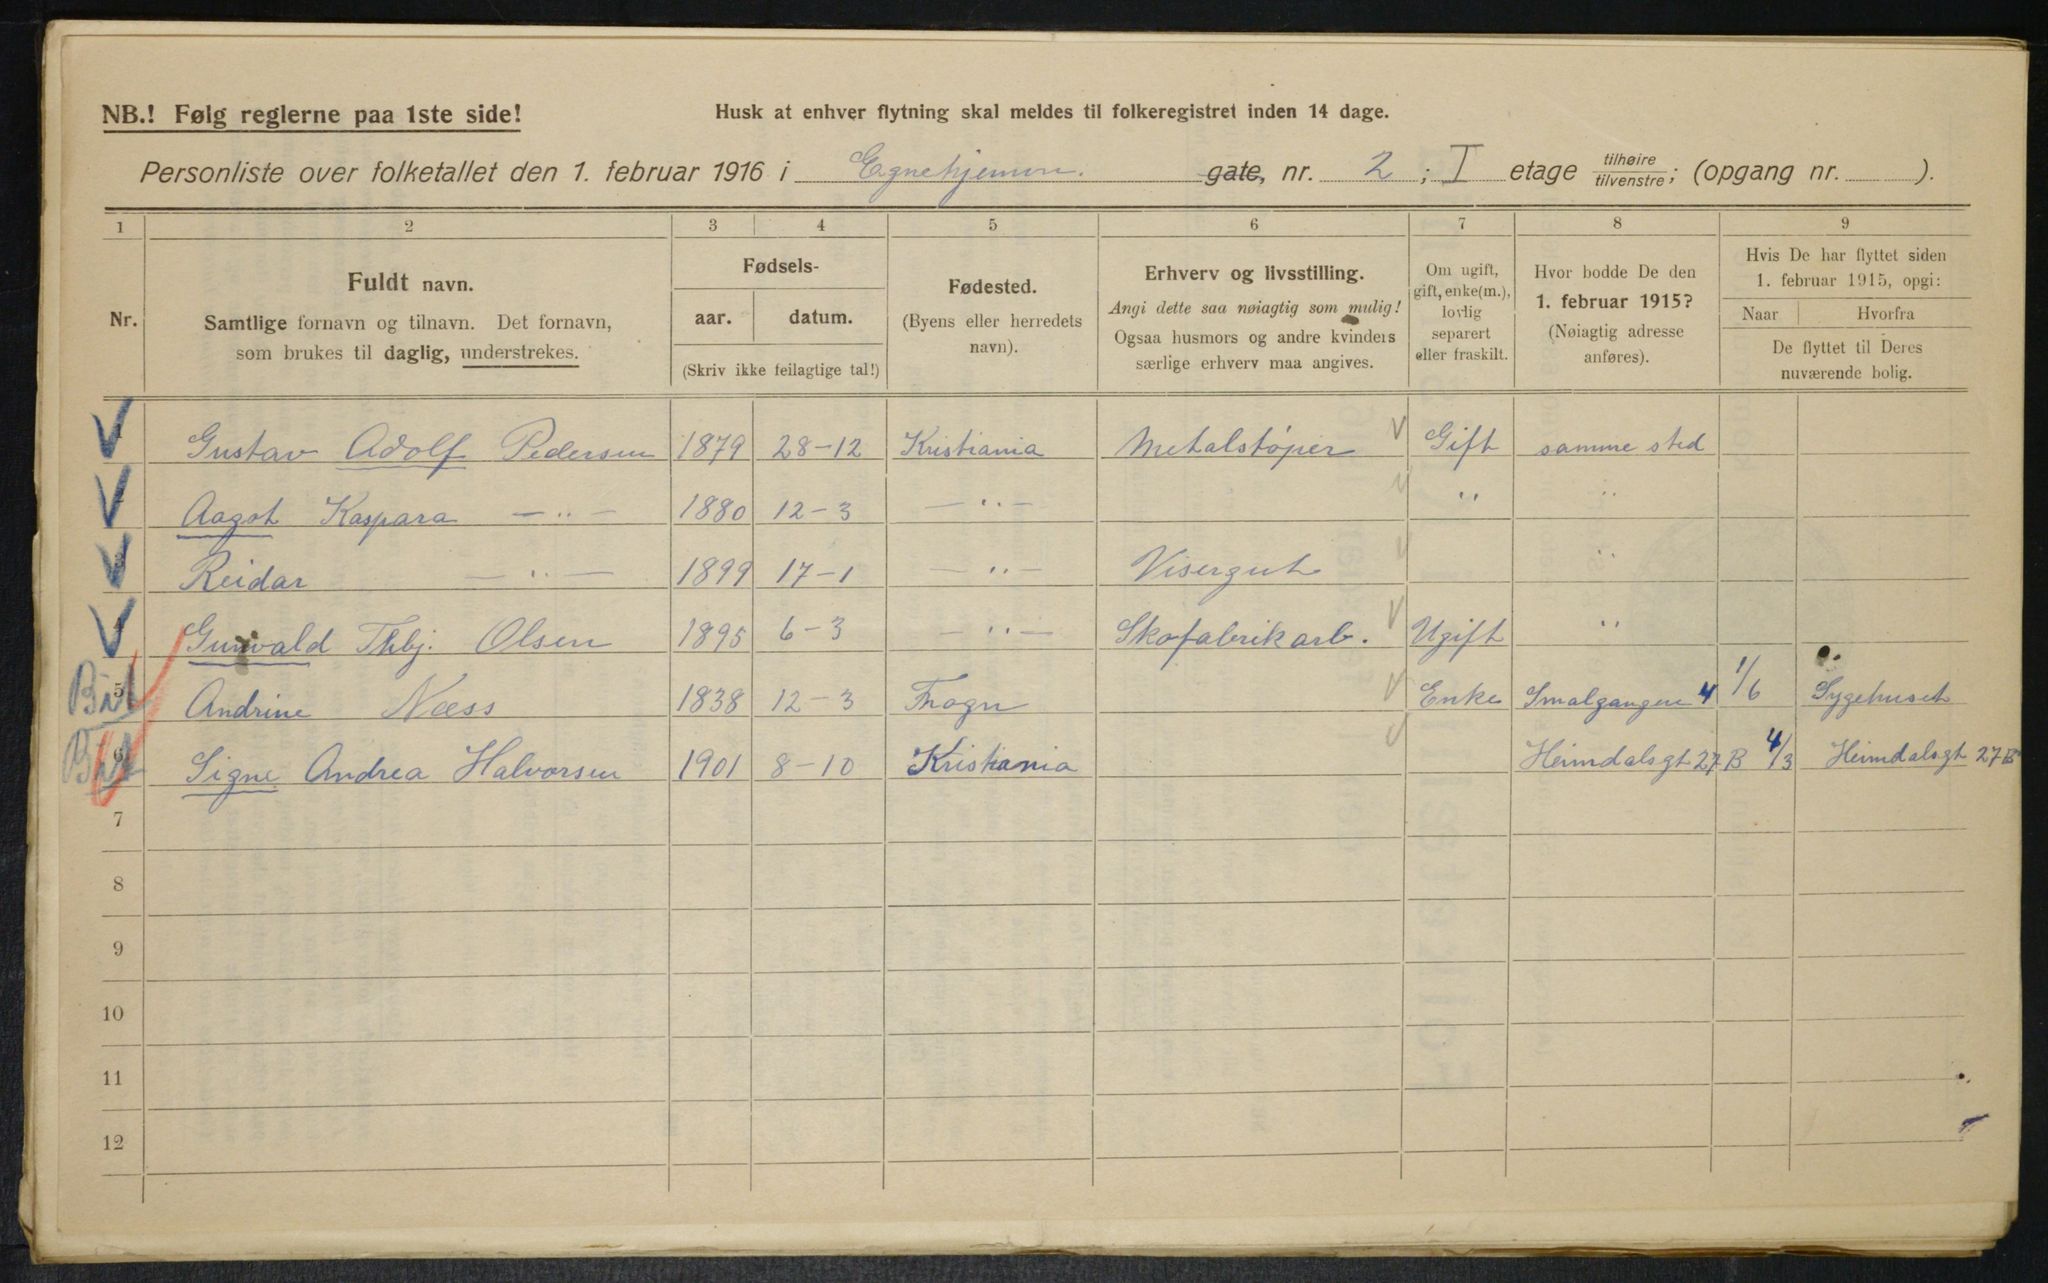 NB.! Følg reglerne paa 1ste side!
Husk at enhver flytning skal meldes til folkeregistret inden 14 dage.
Personliste over folketallet den 1. februar 1916 i Egnehjemm. gate, nr. 2 ; I etage tilhøire tilvenstre; (opgang nr. ).
1 2 3 4 5 6 7 8 9
Nr.
Fuldt navn.
Samtlige fornavn og tilnavn. Det fornavn,
som brukes til daglig, understrekes.
Fødsels-
aar. datum.
(Skriv ikke feilagtige tal!)
Fødested.
(Byens eller herredets
navn).
Erhverv og livsstilling.
Angi dette saa nøiagtig som mulig!
Ogsaa husmors og andre kvinders
særlige erhverv maa angives.
Om ugift,
gift, enke(m.),
lovlig
separert
eller fraskilt.
Hvor bodde De den
1. februar 1915?
(Nøiagtig adresse
anføres).
Hvis De har flyttet siden
1. februar 1915, opgi:
Naar Hvorfra
De flyttet til Deres
nuværende bolig.
1 Gustav Adolf Pedersen 1879 28-12 Kristiania Metalstøper Gift samme sted
2 Aagot Kaspara —"— 1880 12-3 —"— " "
3 Reidar —"— 1899 17-1 —"— Visergut "
4 Gunvald Thbj. Olsen 1895 6-3 —"— Skofabrikarb. Ugift "
5 Andrine Næss 1838 12-3 Frogn Enke Smalgangen 4 1/6 Sygehuset
6 Signe Andrea Halvorsen 1901 8-10 Kristiania Heimdalsgt 27 B 4/3 Heimdalsgt 27 B
7
8
9
10
11
12